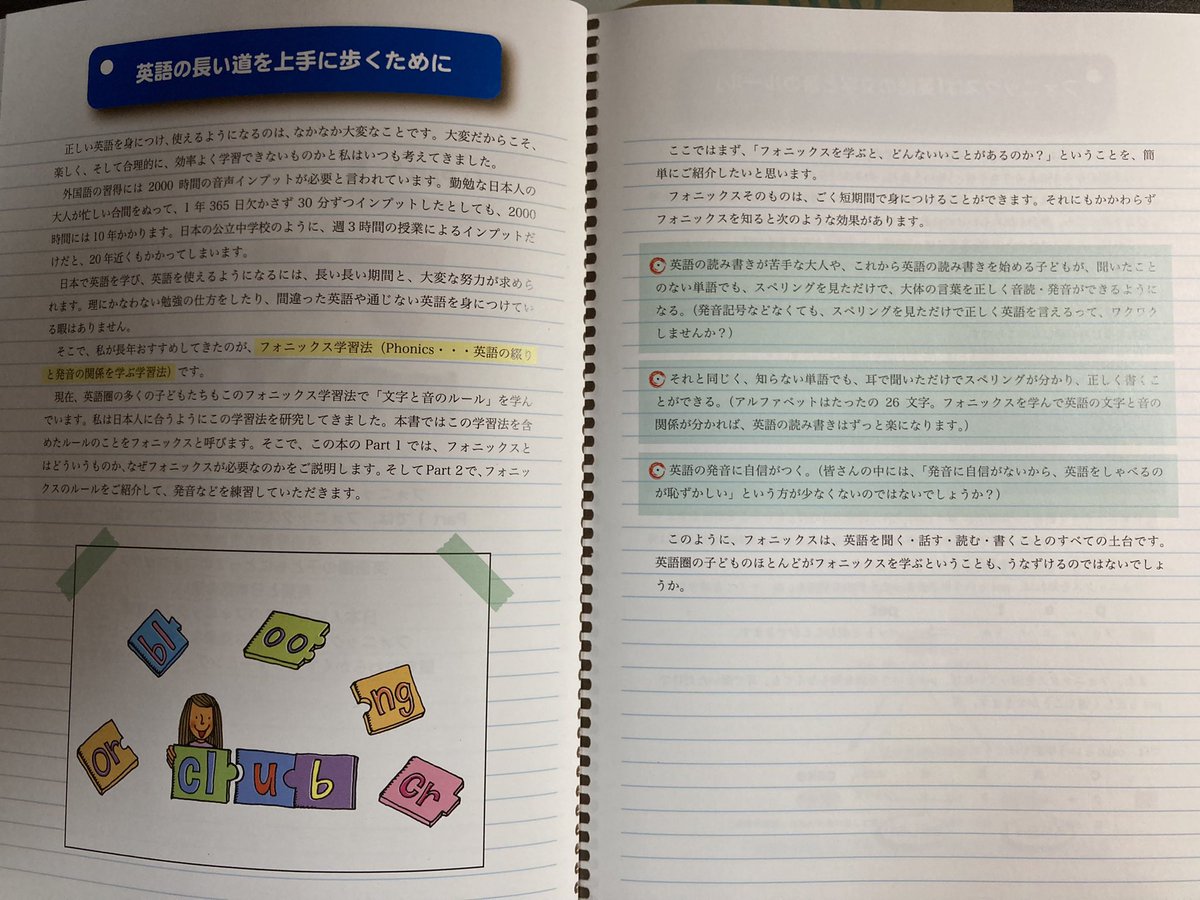 英語の長い道を上手に歩くために
正しい英語を身につけ、使えるようになるのは、なかなか大変なことです。大変だからこそ、
楽しく、そして合理的に、効率よく学習できないものかと私はいつも考えてきました。
外国語の習得には 2000 時間の音声インプットが必要と言われています。勤勉な日本人の
大人が忙しい合間をぬって、1 年 365 日欠かさず 30 分ずつインプットしたとしても、2000
時間には 10 年かかります。日本の公立中学校のように、週 3 時間の授業によるインプットだ
けだと、20 年近くもかかってしまいます。
日本で英語を学び、英語を使えるようになるには、長い長い期間と、大変な努力が求めら
れます。理にかなわない勉強の仕方をしたり、間違った英語や通じない英語を身につけてい
る暇はありません。
そこで、私が長年おすすめしてきたのが、フォニックス学習法（Phonics・・・英語の綴り
と発音の関係を学ぶ学習法）です。
現在、英語圏の多くの子どもたちもこのフォニックス学習法で「文字と音のルール」を学ん
でいます。私は日本人に合うようにこの学習法を研究してきました。本書ではこの学習法を含
めたルールのことをフォニックスと呼びます。そこで、この本の Part 1 では、フォニックスと
はどういうものか、なぜフォニックスが必要なのかをご説明します。そして Part 2 で、フォニッ
クスのルールをご紹介して、発音などを練習していただきます。
bl
oo
ng
or
cl u b
cr
ここではまず、「フォニックスを学ぶと、どんないいことがあるのか？」ということを、簡
単にご紹介したいと思います。
フォニックスそのものは、ごく短期間で身につけることができます。それにもかかわらず
フォニックスを知ると次のような効果があります。
英語の読み書きが苦手な大人や、これから英語の読み書きを始める子どもが、聞いたこと
のない単語でも、スペリングを見ただけで、大体の言葉を正しく音読・発音ができるように
なる。（発音記号などなくても、スペリングを見ただけで正しく英語を言えるって、ワクワク
しませんか？）
それと同じく、知らない単語でも、耳で聞いただけでスペリングが分かり、正しく書くこ
とができる。（アルファベットはたったの 26 文字。フォニックスを学んで英語の文字と音の
関係が分かれば、英語の読み書きはずっと楽になります。）
英語の発音に自信がつく。（皆さんの中には、「発音に自信がないから、英語をしゃべるの
が恥ずかしい」という方が少なくないのではないでしょうか？）
このように、フォニックスは、英語を聞く・話す・読む・書くことのすべての土台です。
英語圏の子どものほとんどがフォニックスを学ぶということも、うなずけるのではないでしょ
うか。